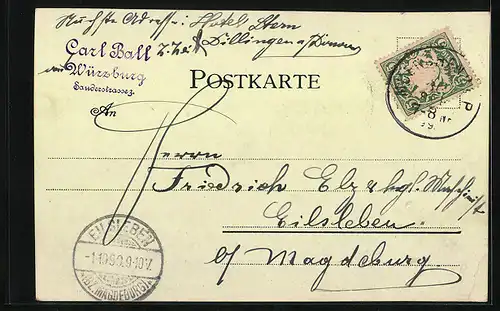 Nächste Adresse: Hotel Stern
z. Zeit Dillingen a/Donau
Carl Ball
Würzburg
Sanderstrasse
POSTKARTE
An
Herrn
Friedrich Elze kgl.
Eilsleben
b/ Magdeburg
EILSLEBEN
(BZ. MAGDEBURG)